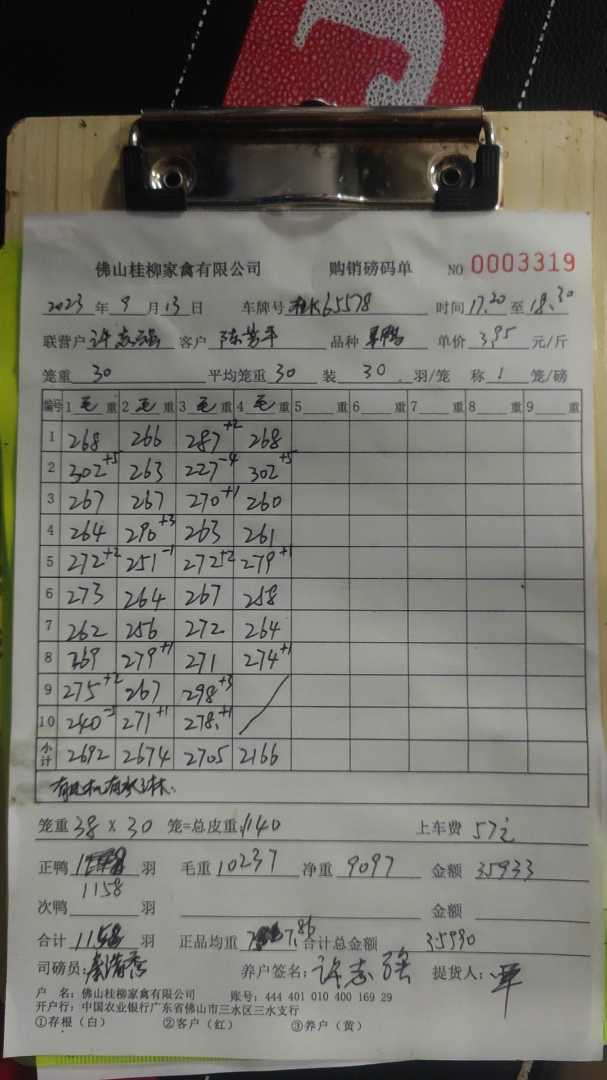 佛山桂柳家禽有限公司 购销磅码单 NO 0003319
2023 年 9 月 13 日 车牌号 桂K65578 时间 17.20 至 18.30
联营户 许志强 客户 陈芳平 品种 单价 3.95 元/斤
笼重 30 平均笼重 30 装 30 羽/笼 称 1 笼/磅
编号 1 毛 重 2 毛 重 3 毛 重 4 毛 重 5 重 6 重 7 重 8 重 9 重
1 268 266 287+2 268
2 302+5 263 227-4 302+5
3 267 267 270+1 260
4 264 290+3 263 261
5 272+2 251-1 272+2 279+1
6 273 264 267 258
7 262 256 272 264
8 269 279+1 271 274+1
9 275+2 267 298+3
10 240-3 271+1 278+1
小计 2692 2674 2705 2166
笼重 38 x 30 笼=总皮重 1140 上车费 57元
正鸭 羽 毛重 10237 净重 9097 金额 35933
1158
次鸭 羽 金额
合计 1158 羽 正品均重 7.86 合计总金额 35990
司磅员: 养户签名: 许志强 提货人: 平
户 名: 佛山桂柳家禽有限公司 账号: 444 401 010 400 169 29
开户行: 中国农业银行广东省佛山市三水区三水支行
①存根（白） ②客户（红） ③养户（黄）